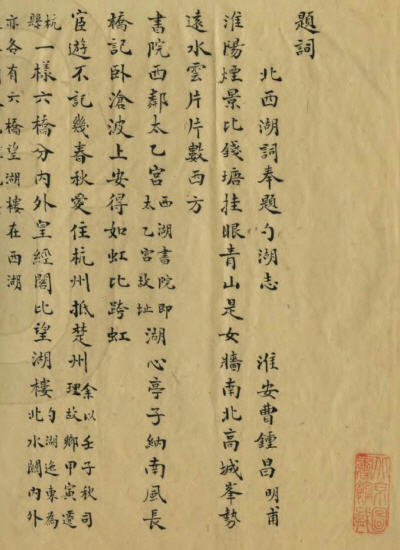 題詞
北西湖詞奉題勺湖志　淮安曹鍾昌明甫
淮陽煙景比錢塘挂眼青山是女牆南北高城峯勢
遠水雲片片數西方
書院西鄰太乙宮西湖書院即太乙宮故址湖心亭子納南風長
橋記臥滄波上安得如虹比跨虹
宦遊不記幾春秋愛住杭州抵楚州余以壬子秋司理故鄉甲寅還
杭縣一樣六橋分內外皇經閣比望湖樓勺湖迤東為北水關內外
亦各有六橋望湖樓在西湖
北京圖書館藏